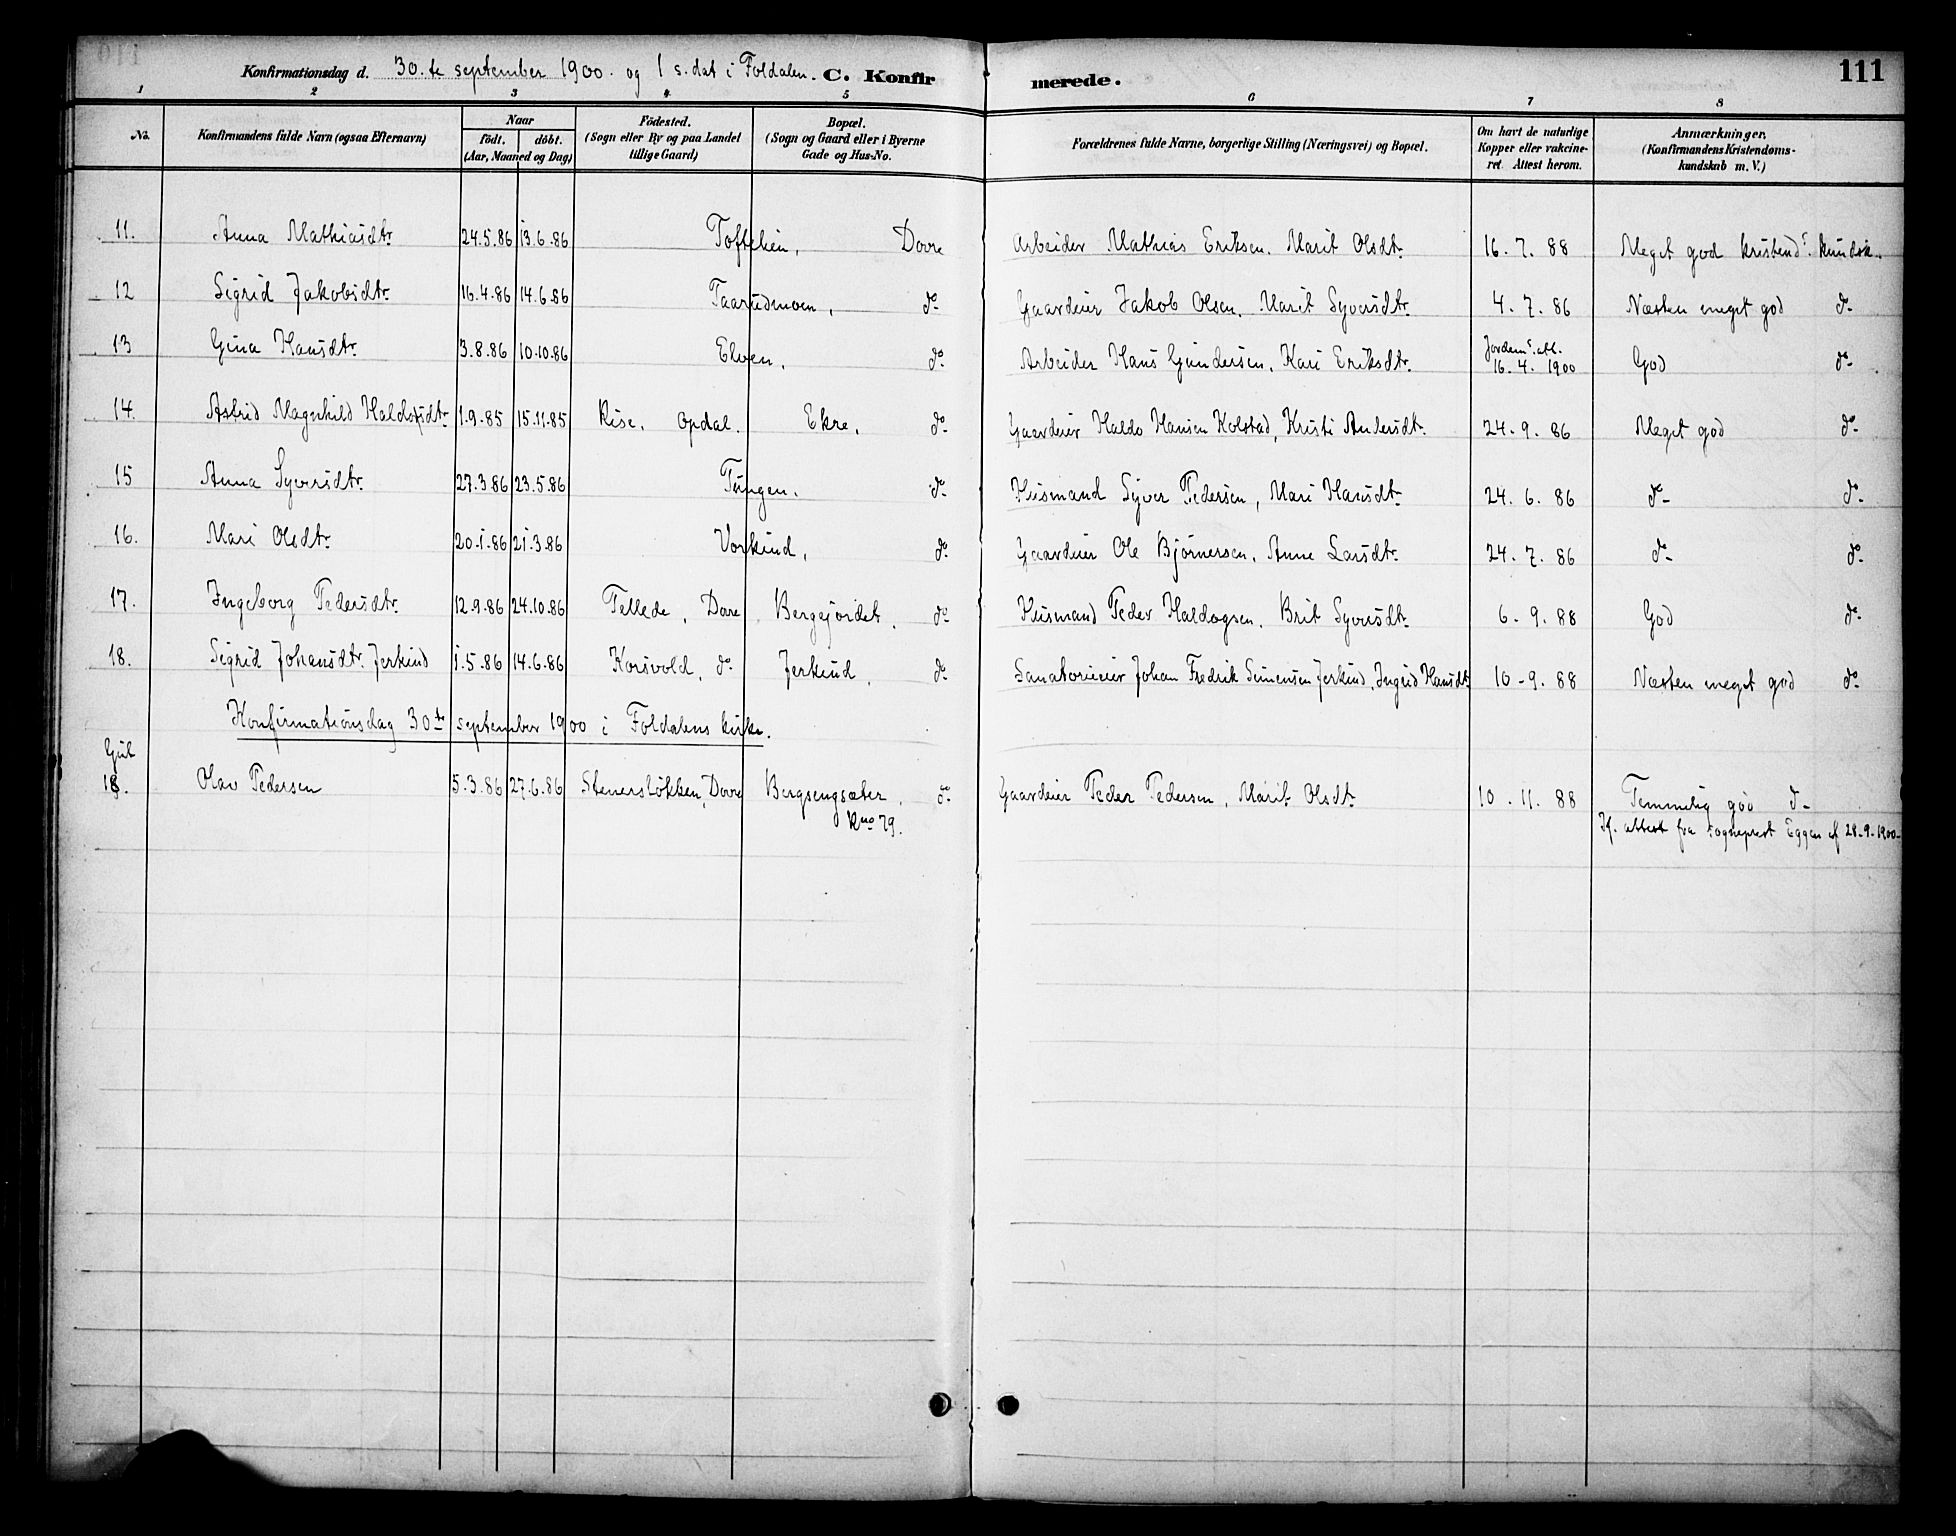 Konfirmationsdag d. 30.te september 1900. og 1 s.dat i Foldalen. C. Konfir merede. 111
1 2 3 4 5 6 7 8
No. Konfirmandens fulde Navn (ogsaa Efternavn) Naar Födt. döbt. (Aar, Maaned og Dag) Födested. (Sogn eller By og paa Landet tillige Gaard) Bopæl. (Sogn og Gaard eller i Byerne Gade og Hus-No. Forældrenes fulde Navne, borgerlige Stilling (Næringsvei) og Bopæl. Om havt de naturlige Kopper eller vakcineret. Attest herom. Anmærkninger. (Konfirmandens Kristendomskundskab m. V.)
11. Anna Mathiasdtr. 24.5.86 13.6.86 Dovre Arbeider Mathias Eriksen. Marit Olsdtr. 16. 7. 88 Meget god kristends. kundsk.
12 Sigrid Jakobsdtr. 16.4.86 14.6.86 Taarudmoen, do. Gaardeier Jakob Olsen. Marit Syversdtr. 4. 7. 86 Næsten meget god do.
13 Gina Hansdtr. 3.8.86 10.10.86 Elven. do. Arbeider Hans Gundersen. Kari Eriksdtr. Jordems. att. 16. 4. 1900 God do.
14. Astrid Magnhild Haldosdtr. 1.9.85 15.11.85 Rise. Opdal. Ekre. do. Gaardeier Haldo Hansen Kolstad, Kristi Andersdtr. 24. 9. 86 Meget god do.
15 Anna Syversdtr. 27.3.86 23.5.86 Tungen. do. Husmand Syver Pedersen, Mari Hansdtr. 24. 6. 86 do. do.
16. Mari Olsdtr. 20.1.86 21.3.86 Vorkind, do. Gaardeier Ole Bjørnersen. Anne Larsdtr. 24. 7. 86 do. do.
17. Ingeborg Pedersdtr. 12.9.86 24.10.86 Dovre. Bergejordet. do. Husmand Peder Haldogsen. Brit Syversdtr. 6. 9. 88 God do.
18. Sigrid Johansdtr. Jerkind 1.5.86 14.6.86 Korsvold, do. Jerkind. do. Sanatorieeier Johan Fredrik Simensen Jerkind, Ingrid Hansdtr. 10. 9. 88 Næsten meget god do.
Konfirmationsdag 30te september 1900 i Foldalens kirke.
Gut
Olav Pedersen 5.3.86 27.6.86 Stenersløkken, Dovre Bergsengsæter. do. Gaardeier Peder Pedersen, Marit Olsdtr. 10. 11. 88 Temmelig god do.
79. Jf. attest fra sogneprest Eggen af 28.9.1900.